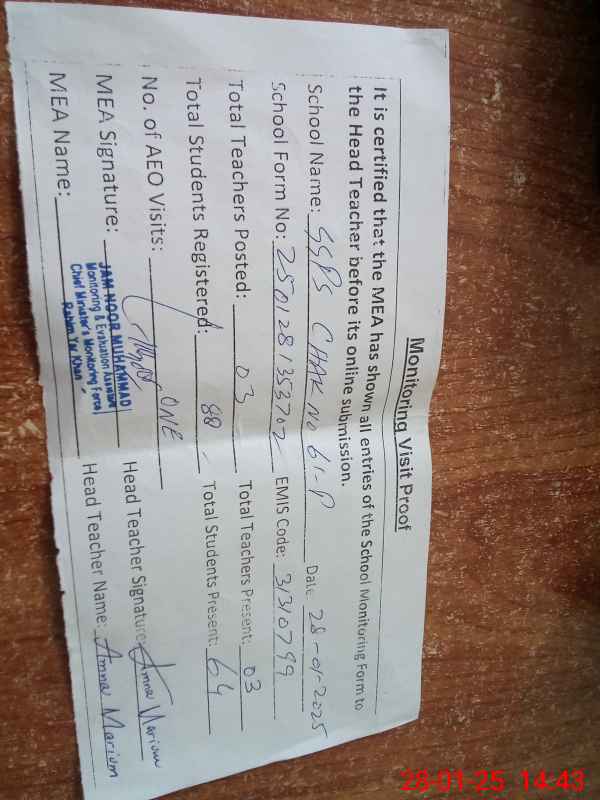 Monitoring Visit Proof
It is certified that the MEA has shown all entries of the School Monitoring Form to
the Head Teacher before its online submission.
School Name: GGPS CHAK No 61-P Date 28-01-2025
School Form No: 2501281353702 EMIS Code: 31310799
Total Teachers Posted: 03 Total Teachers Present: 03
Total Students Registered: 88 Total Students Present: 64
No. of AEO Visits: ONE
MEA Signature: Head Teacher Signature: Amna Marium
JAM NOOR MUHAMMAD
Monitoring & Evaluation Assistant
Chief Minister's Monitoring Force
Rahim Yar Khan
MEA Name: Head Teacher Name: Amna Marium
28-01-25 14:43